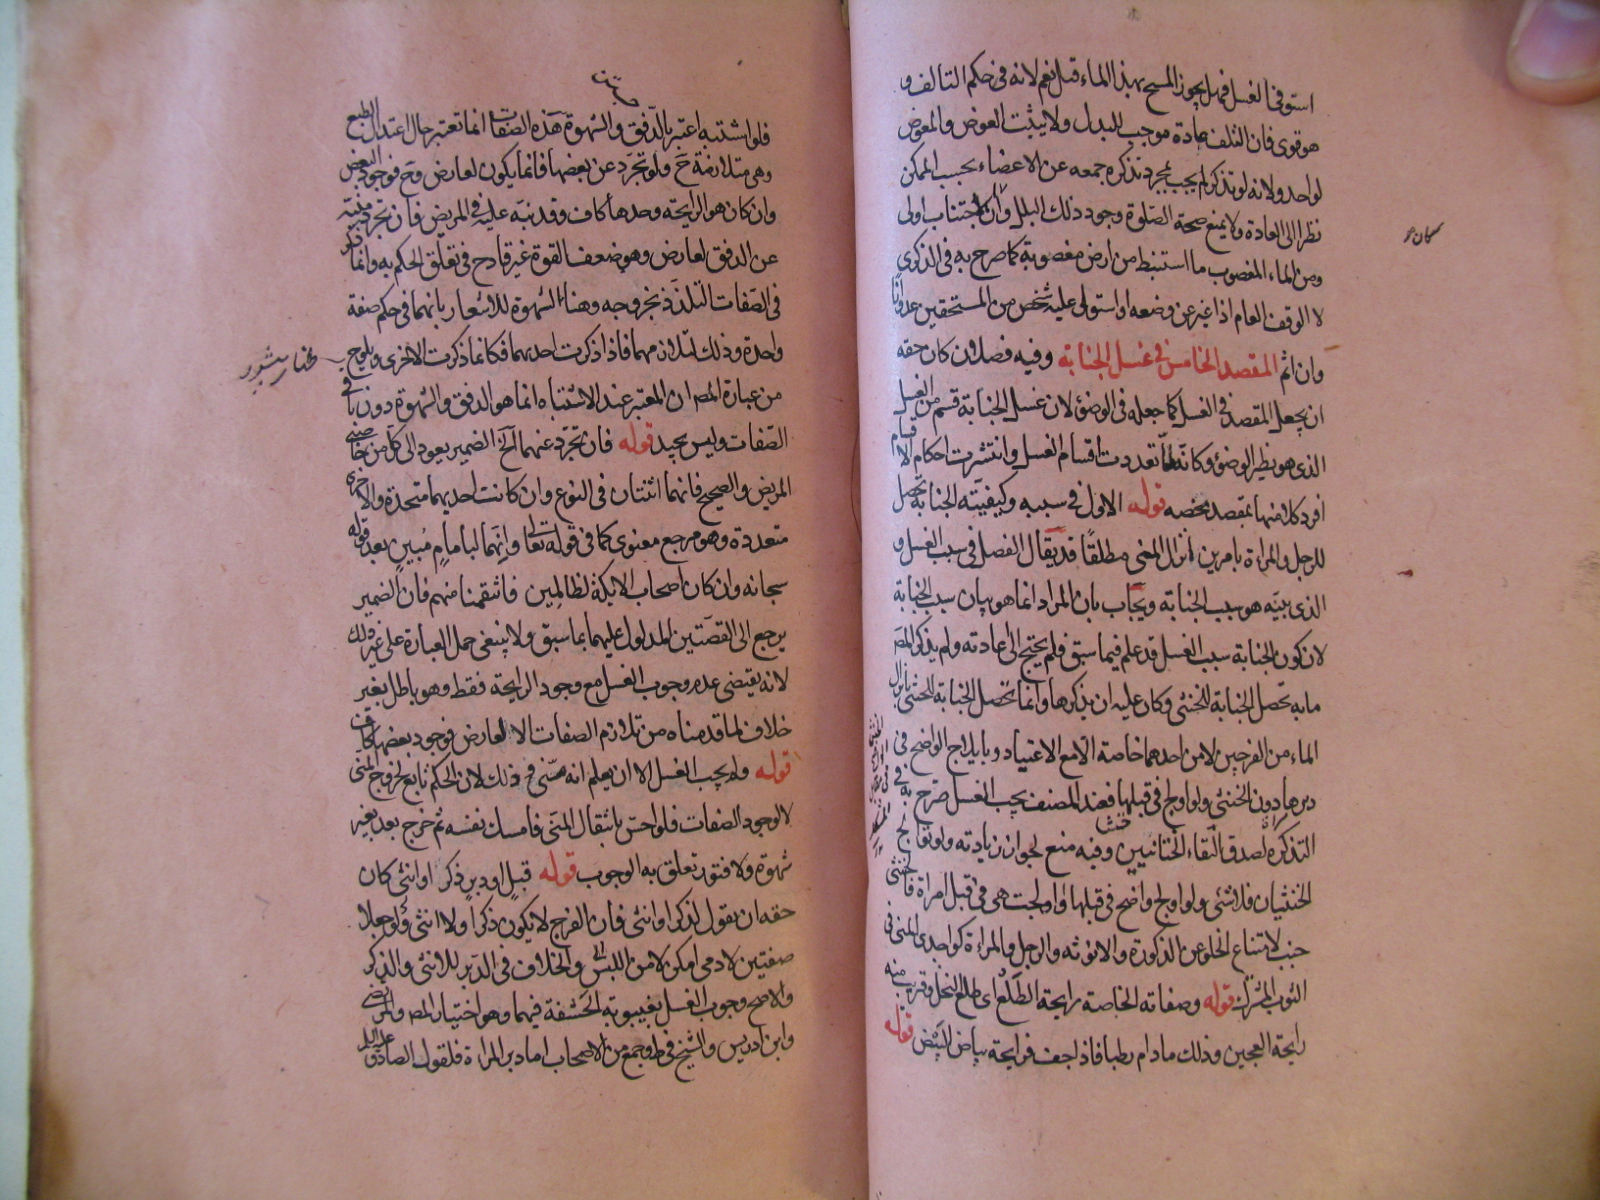 استوفى الغسل فهل يجوز المسح بهذا الماء قيل نعم لانه فى حكم التالف و
هو قوى فان التلف عادة موجب للبدل ولا يثبت العوض والمعوض
لواحد ولانه لو تذكر لم يجب بمجرد تذكره جمعه عن الاعضاء بحسب الممكن
نظرا الى العادة ولا يمنع صحة الصلوة وجود ذلك البلل وان كان اجتناب اولى
ومن الماء المغصوب ما استنبط من ارض مغصوبة كما صرح به فى الذكرى
لا الوقف العام اذا غير عن وضعه او استولى عليه شخص من المستحقين عدوانا
وان اثم المقصد الخامس فى غسل الجنابة وفيه فصلان كان حقه
ان يجعل المقصد فى الغسل كما جعله فى الوضوء لان غسل الجنابة قسم من الغسل
الذى هو نظير الوضوء وكانه لما تعددت اقسام الغسل وانتشرت احكام الاقسام
افرد كلا منها بمقصد يخصه قوله الاول فى سببه وكيفيته الجنابة تحصل
للرجل والمراءة بامرين انزال المنى مطلقا قد يقال الفصل فى سبب الغسل و
الذى بينه هو سبب الجنابة ويجاب بان المراد انما هو بيان سبب الجنابة
لان كون الجنابة سبب الغسل قد علم فيما سبق فلم يحتج الى عادته ولم يذكر المص
ما به تحصل الجنابة للخنثى وكان عليه ان يذكرها وانما تحصل الجنابة للخنثى بانزال
الماء من الفرجين لا من احدهما خاصة الا مع الاعتياد وبايلاج الواضح فى
دبرها دون الخنثى ولو اولج فى قبلها فعند المصنف يجب الغسل صرح به فى
التذكرة لصدق التقاء الختانيين وفيه منع لجواز زيادته ولو توالج
الخنثيان فلا شئى ولو اولج واضح فى قبلها واولجت هى فى قبل امراة فالخنثى
جنب لامتناع الخلو عن الذكورة والانوثه والرجل والمراءة كواجدى المنى فى
الثوب المشترك قوله وصفاته الخاصة رايحة الطلع اى طلع النخل وقريب منه
رايحة العجين وذلك مادام رطبا فاذا جف فرايحة بياض البيض قوله
فلو اشتبه اعتبر بالدفق والشهوة هذه الصفات انما تعتبر حال اعتدال الطبع
وهى متلازمة ح ولو تجرد عن بعضها فانما يكون لعارض وح فوجود البعض
وان كان هو الرايحة وحدها كاف وقد نبه عليه فى المريض فان تجرد منيته
عن الدفق لعارض وهو ضعف القوة غير قادح فى تعلق الحكم به وانما ذكر
فى الصفات التلذذ بخروجه وهنا الشهوة للاشعار بانهما فى حكم صفة
واحدة وذلك لتلازمهما فاذا ذكرت احديهما فكانما ذكرت الاخرى ويلوح
من عبارة المص ان المعتبر عند الاشتباه انما هو الدفق والشهوة دون باقى
الصفات وليس بجيد قوله فان تجرد عنهما الخ الضمير يعود الى كل من خاصتى
المريض والصحيح فانهما اثنتان فى النوع وان كانت احديهما متحدة والاخرى
متعددة وهو مرجع معنوى كما فى قوله تعالى وانهما لبامام مبين بعد قوله
سبحانه وان كان اصحاب الايكة لظالمين فانتقمنا منهم فان الضمير
يرجع الى القصتين المدلول عليهما بما سبق ولا ينبغى حمل العبارة على غير ذلك
لانه يقتضى عدم وجوب الغسل مع وجود الرايحة فقط وهو باطل بغير
خلاف لما قدمناه من تلازم الصفات الا لعارض فوجود بعضها كاف
قوله ولم يجب الغسل الا ان يعلم انه منى وذلك لان الحكم تابع لخروج المنى
لا لوجود الصفات فلو احس بانتقال المنى فامسك نفسه ثم خرج بعد بغير
شهوة ولا فتور تعلق به الوجوب قوله قبل او دبر ذكر او انثى كان
حقه ان يقول لذكر او انثى فان الفرج لا يكون ذكرا ولا انثى ولو جعلا
صفتين لادمى امكن لامن اللبس والخلاف فى الدبر للانثى والذكر
والاصح وجوب الغسل بغيبوبة الحشفة فيهما وهو اختيار المص والمرتضى
وابن ادريس والشيخ فى ط وجمع من الاصحاب اما دبر المراة فلقول الصادق عليه السلام